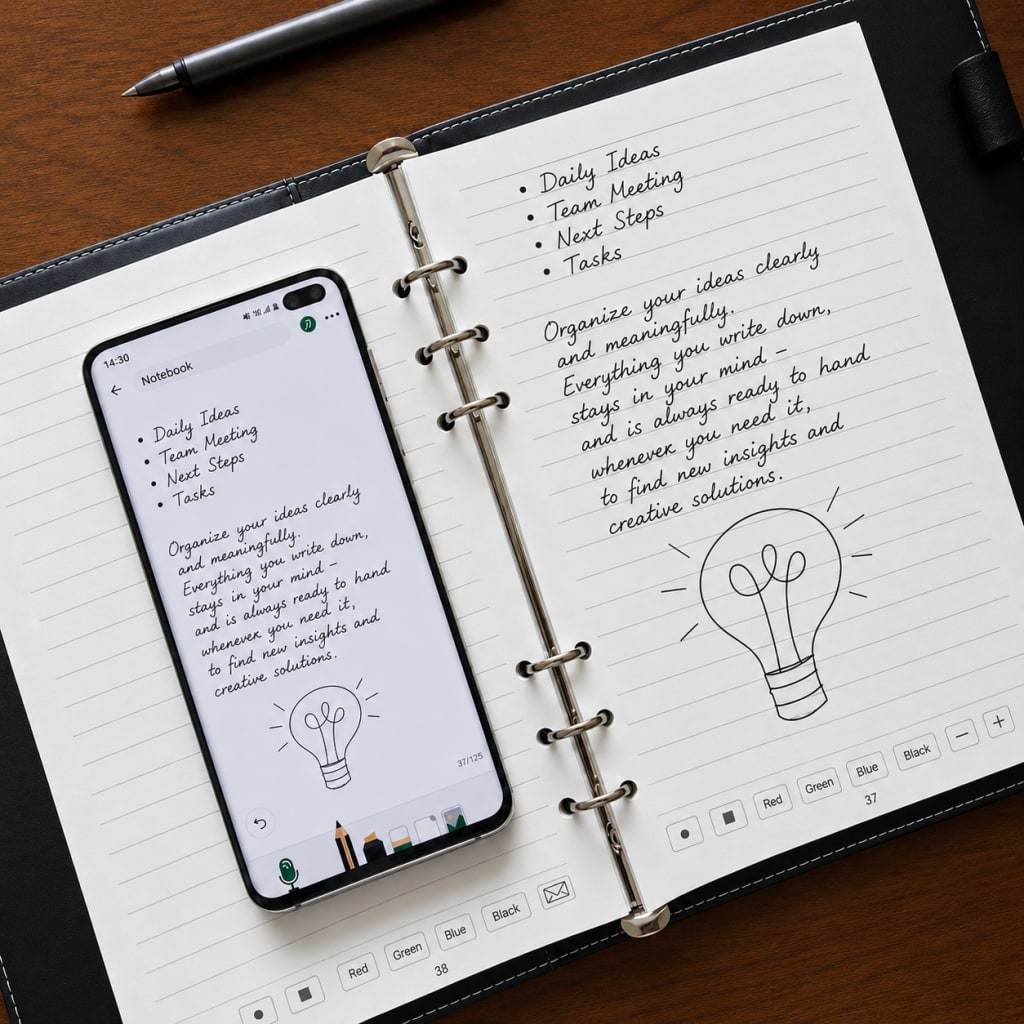 14:30
Notebook
• Daily Ideas
• Team Meeting
• Next Steps
• Tasks
Organize your ideas clearly
and meaningfully.
Everything you write down,
stays in your mind –
and is always ready to hand
whenever you need it,
to find new insights and
creative solutions.
37/125
Red
Green
Blue
Black
38
• Daily Ideas
• Team Meeting
• Next Steps
• Tasks
Organize your ideas clearly
and meaningfully.
Everything you write down,
stays in your mind –
and is always ready to hand
whenever you need it,
to find new insights and
creative solutions.
Red
Green
Blue
Black
− +
37